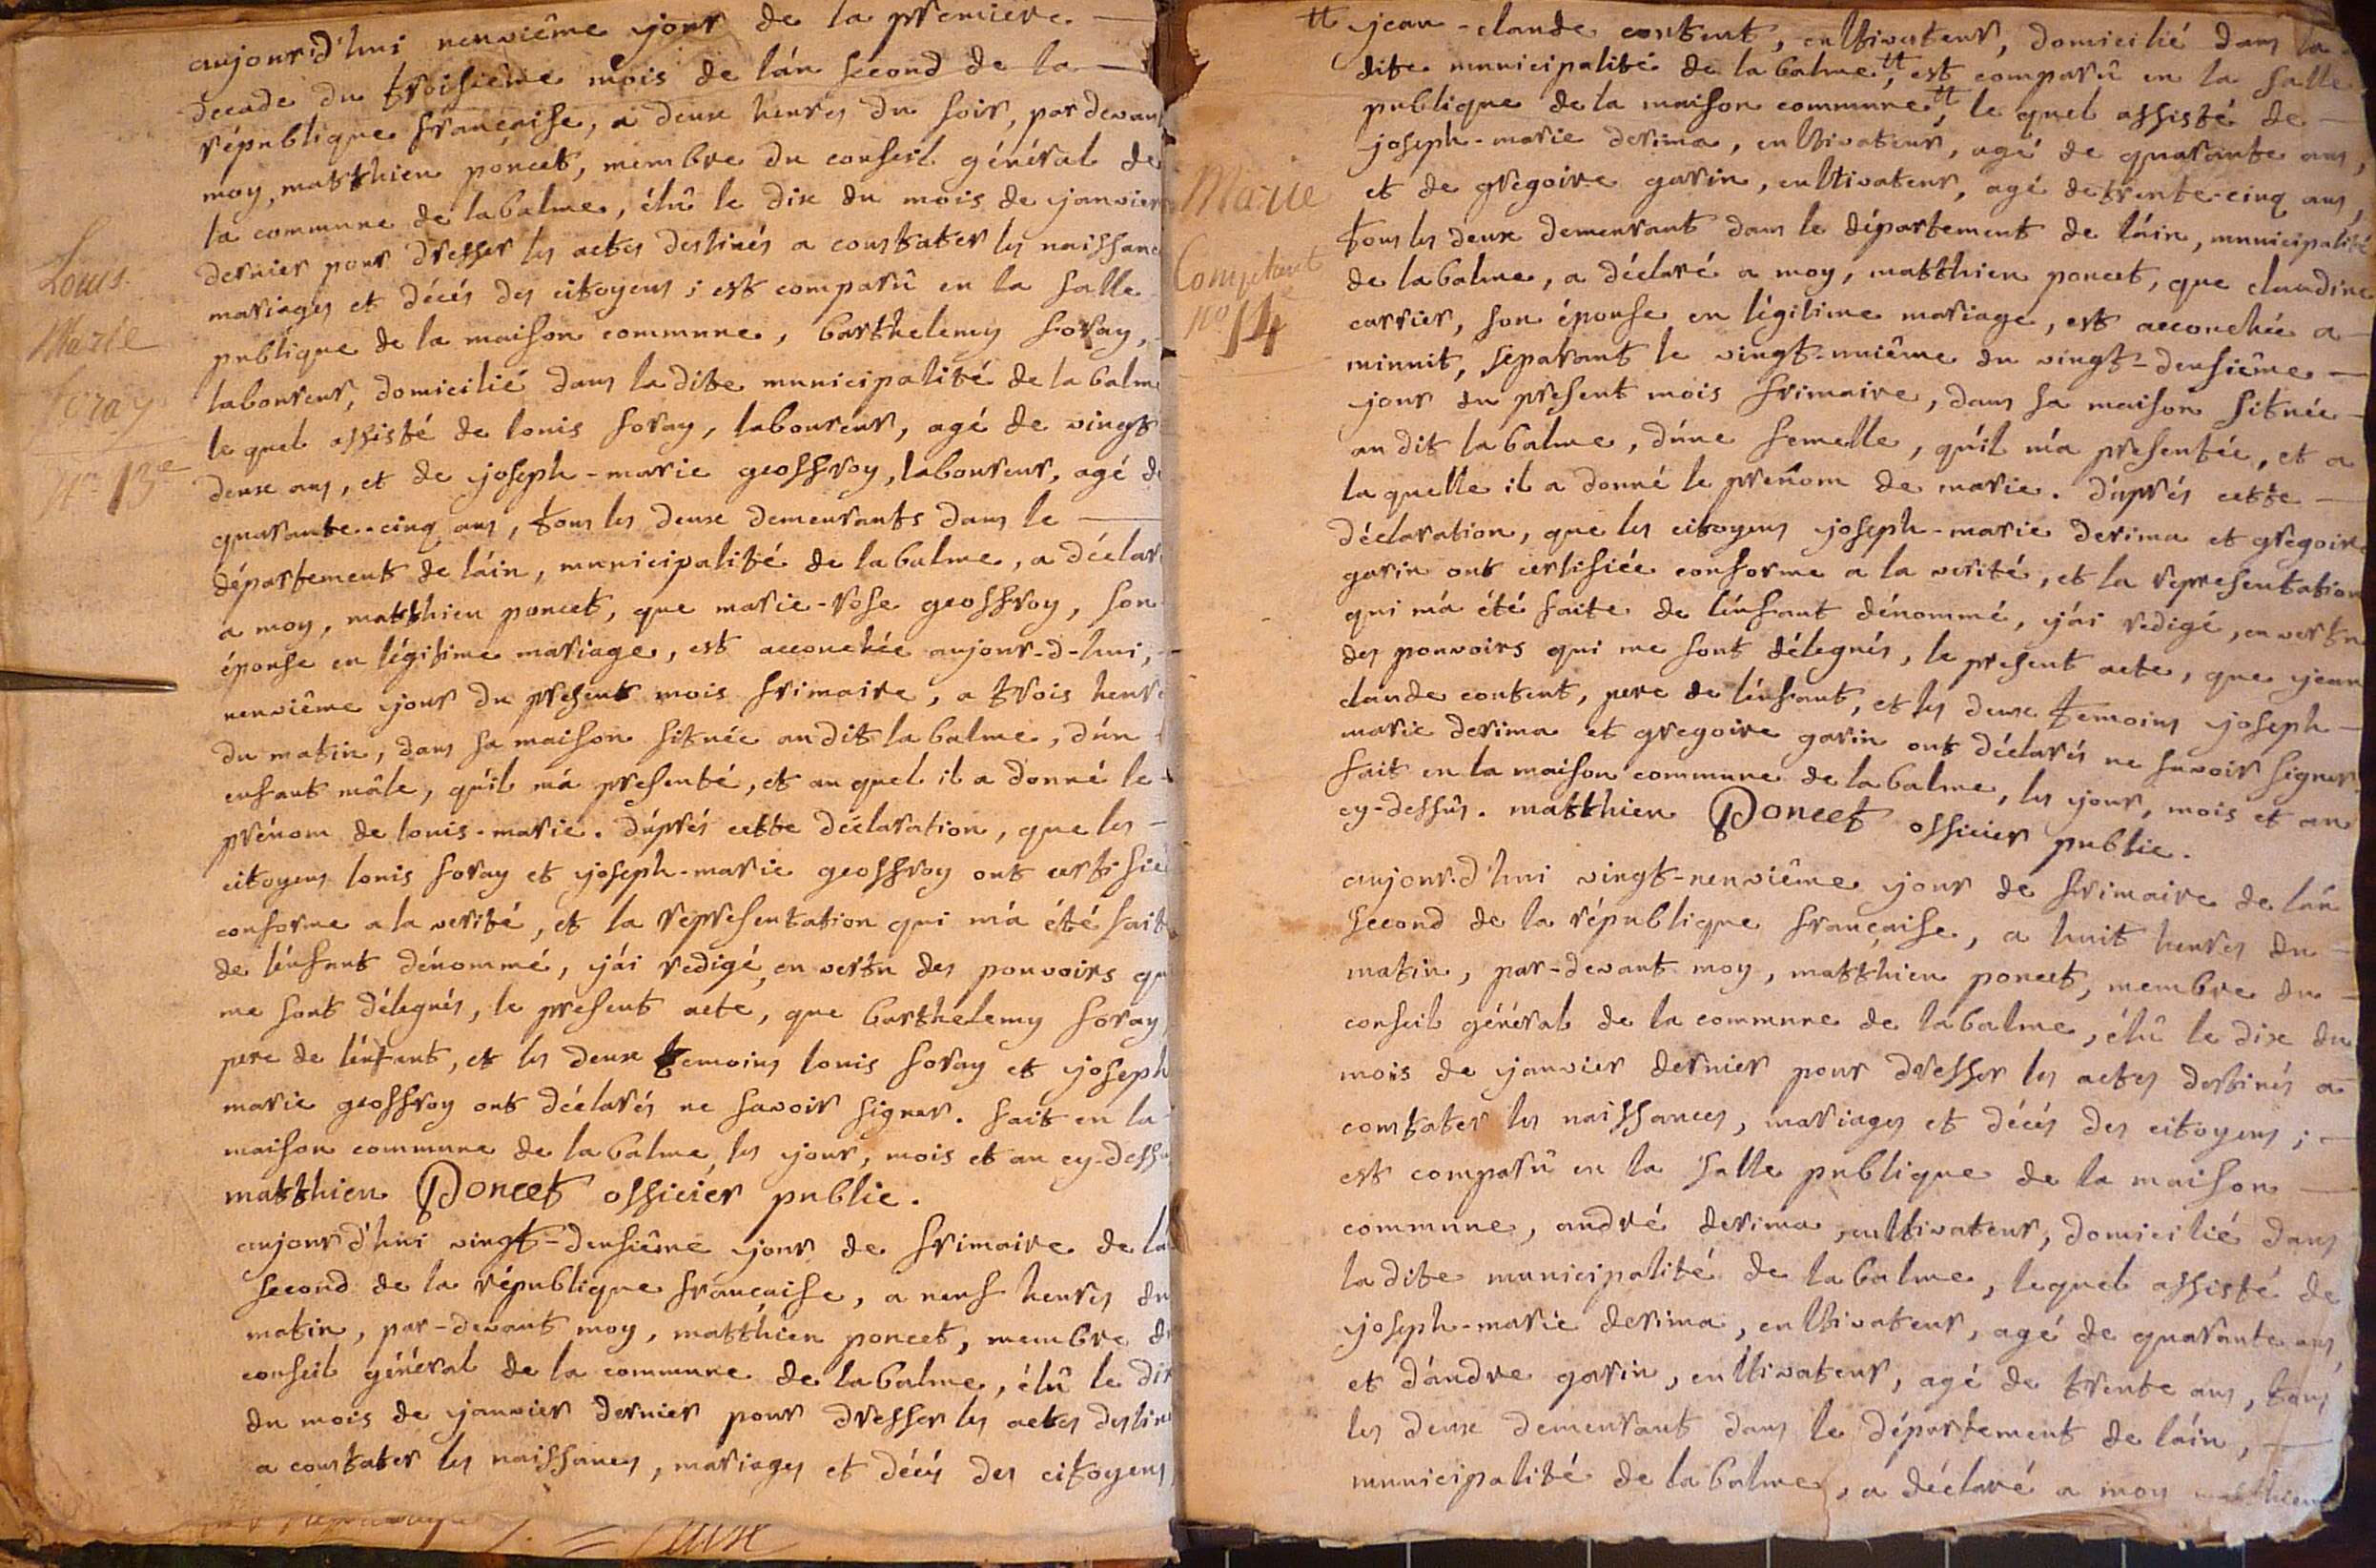 aujourd'hui neuviême jour de la premiere
decade du troisiême mois de lán second de la
république françaiſe, a deux heures du ſoir, par devant
moy, matthieu poncet, membre du conſeil général de
la commune de labalme, élû le dix du mois de janvier
dernier pour dreſſer les actes destinés a constater les naiſſanc
mariages et décés des citoyens ; est comparû en la ſalle
publique de la maiſon commune, barthelemy foray,
laboureur, domicilié dans ladite municipalité de labalme
le quel aſſisté de louis foray, laboureur, agé de vingt
deux ans, et de joſeph-marie geoffroy, laboureur, agé de
quarante-cinq ans, tous les deux demeurants dans le
département de láin, municipalité de labalme, a déclaré
a moy, matthieu poncet, que marie-roſe geoffroy, ſon
épouſe en légitime mariage, est accouchée aujour-d-hui,
neuviême jour du preſent mois frimaire, a trois heures
du matin, dans ſa maiſon ſituée audit labalme, dún
enfant mâle, qúil má preſenté, et au quel il a donné le
prénom de louis-marie. dáprés cette déclaration, que les
citoyens louis foray et joſeph-marie geoffroy ont certifié
conforme a la verité, et la repreſentation qui má été faite
de lénfant dénommé, jái redigé, en vertu des pouvoirs qu
me ſont délegués, le preſent acte, que barthelemy foray
pere de lénfant, et les deux temoins louis foray et joſeph
marie geoffroy ont déclarés ne ſavoir ſigner. fait en la
maiſon commune de labalme, les jour, mois et an cy-deſſu
matthieu Poncet officier public.
Louis
Marie
foray
N° 13e
aujourd'hui vingt-deuſiême jour de frimaire de la
ſecond de la république françaiſe, a neuf heures du
matin, par-devant moy, matthieu poncet, membre du
conſeil général de la commune de labalme, élû le dix
du mois de janvier dernier pour dreſſer les actes destine
a constater les naiſſances, mariages et décés des citoyens
tt jean-claude content, cultivateur, domicilié dans la
dite municipalité de labalme, tt est comparû en la ſalle
publique de la maiſon commune, tt le quel aſſisté de
joſeph-marie derima, cultivateur, agé de quarante ans,
et de gregoire garin, cultivateur, agé de trente-cinq ans,
tous les deux demeurant dans le département de láin, municipalité
de labalme, a déclaré a moy, matthieu poncet, que claudine
carrier, ſon épouſe en légitime mariage, est accouchée a
minuit, ſeparant le vingt-uniême du vingt-deuſiême
jour du preſent mois frimaire, dans ſa maiſon ſituée
au dit labalme, dúne femelle, qúil má preſentée, et a
la quelle il a donné le prénom de marie. dáprés cette
déclaration, que les citoyens joſeph-marie derima et gregoire
garin ont certifiée conforme a la verité, et la repreſentation
qui má été faite de lénfant dénommé, jái redigé, en vertu
des pouvoirs qui me ſont délegués, le preſent acte, que jean
claude content, pere de lénfant, et les deux temoins joſeph
marie derima et gregoire garin ont déclarés ne ſavoir ſigner.
fait en la maiſon commune de labalme, les jour, mois et an
cy-deſſûs. matthieu Poncet officier public.
Marie
n° 14e
aujourd'hui vingt-neuviême jour de frimaire de lán
ſecond de la république françaiſe, a huit heures du
matin, par-devant moy, matthieu poncet, membre du
conſeil général de la commune de labalme, élû le dix du
mois de janvier dernier pour dreſſer les actes destinés a
constater les naiſſances, mariages et décés des citoyens ;
est comparû en la ſalle publique de la maiſon
commune, andré derima, cultivateur, domicilié dans
ladite municipalité de labalme, lequel aſſisté de
joſeph-marie derima, cultivateur, agé de quarante ans,
et dándre garin, cultivateur, agé de trente ans, tous
les deux demeurant dans le département de láin,
municipalité de labalme, a déclaré a moy matthieu